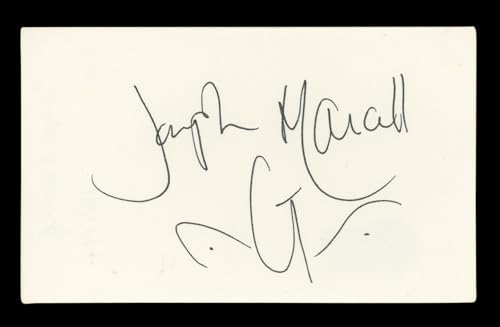 Joseph Marcell